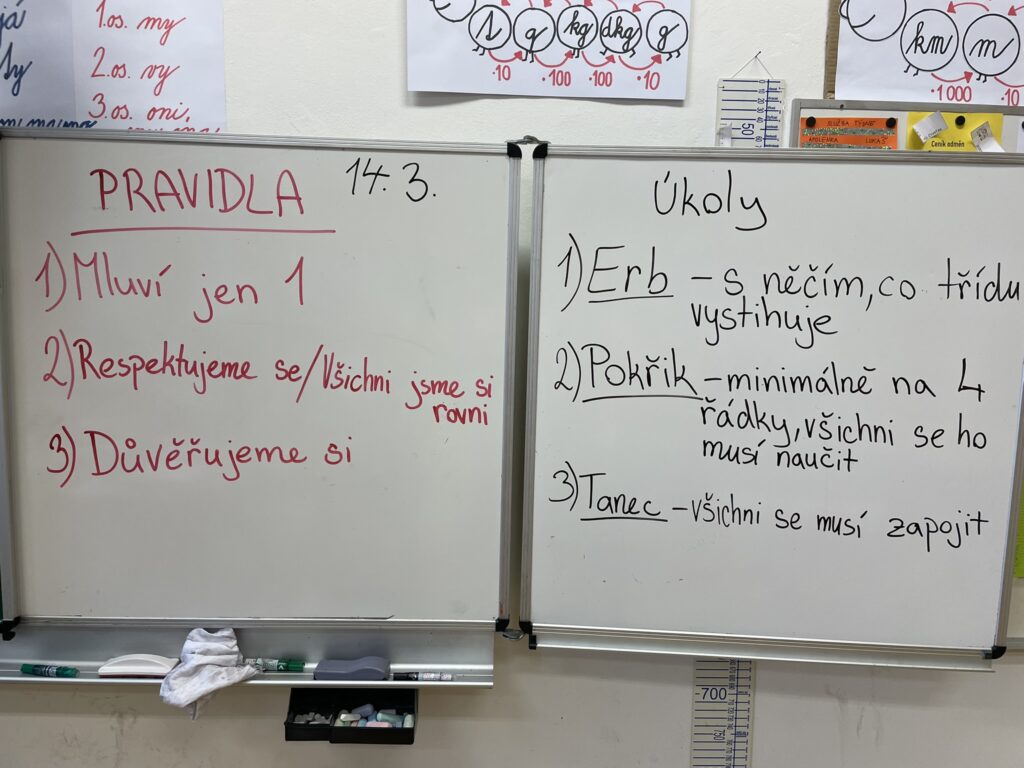 já
ly
1.os. my
2.os. vy
3.os. oni,
g kg dkg g
·10 ·100 ·100 ·10
km m
·1000 ·10
50
SLUŽBA TÝDNE
LUKÁŠ
Ceník odměn
PRAVIDLA 14. 3.
1) Mluví jen 1
2) Respektujeme se/Všichni jsme si
rovni
3) Důvěřujeme si
Úkoly
1) Erb – s něčím, co třídu
vystihuje
2) Pokřik – minimálně na 4
řádky, všichni se ho
musí naučit
3) Tanec – všichni se musí zapojit
700
750